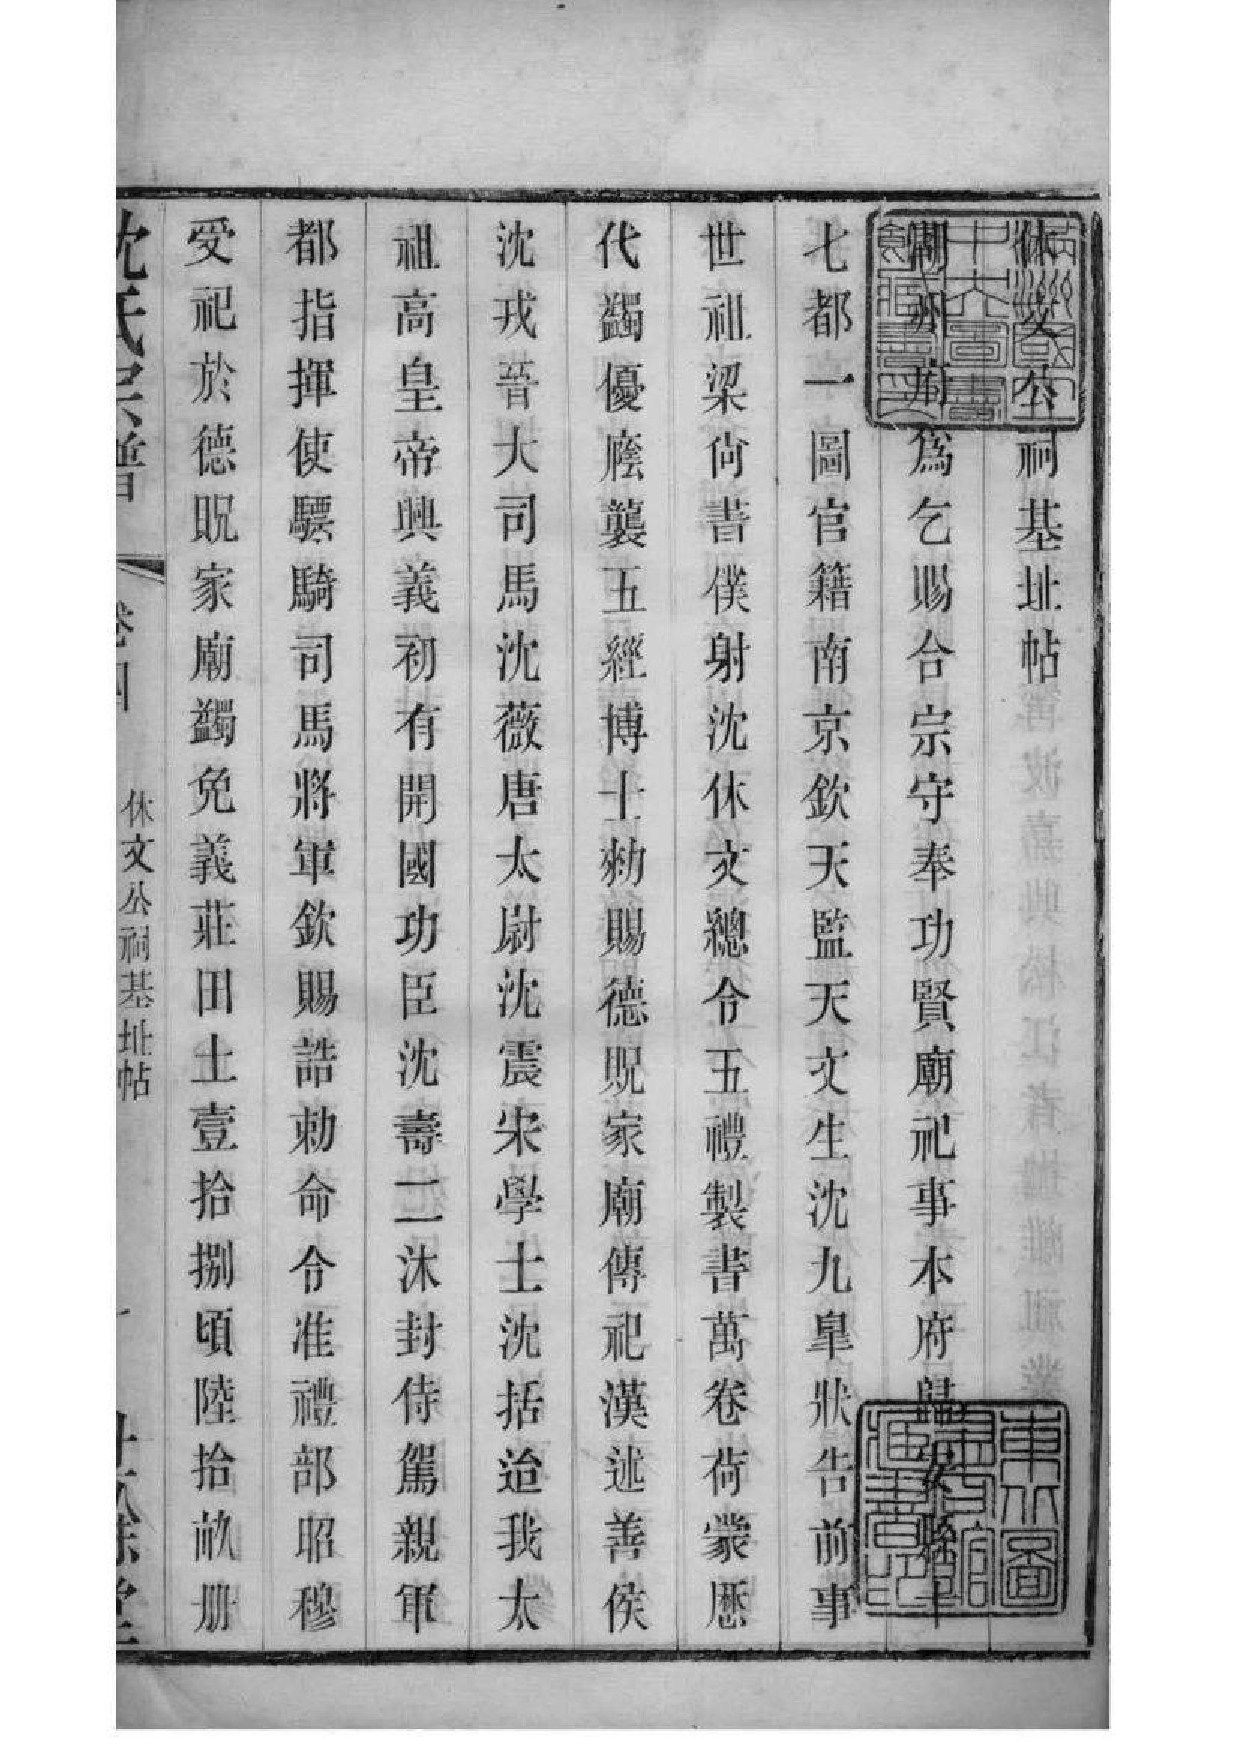 休文公祠基址帖
湖州府爲乞賜合宗守奉功賢廟祀事本府歸安縣十
七都一圖官籍南京欽天監天文生沈九臯狀告前事
世祖梁尙書僕射沈休文總令五禮製書萬卷荷蒙歷
代蠲優廕襲五經博士勑賜德貺家廟傳祀漢述善侯
沈戎晉大司馬沈薇唐太尉沈震宋學士沈括迨我太
祖高皇帝興義初有開國功臣沈壽二沐封侍駕親軍
都指揮使驃騎司馬將軍欽賜誥勑命令准禮部昭穆
受祀於德貺家廟蠲免義莊田土壹拾捌頃陸拾畝册
沈氏宗譜
卷四
休文公祠基址帖